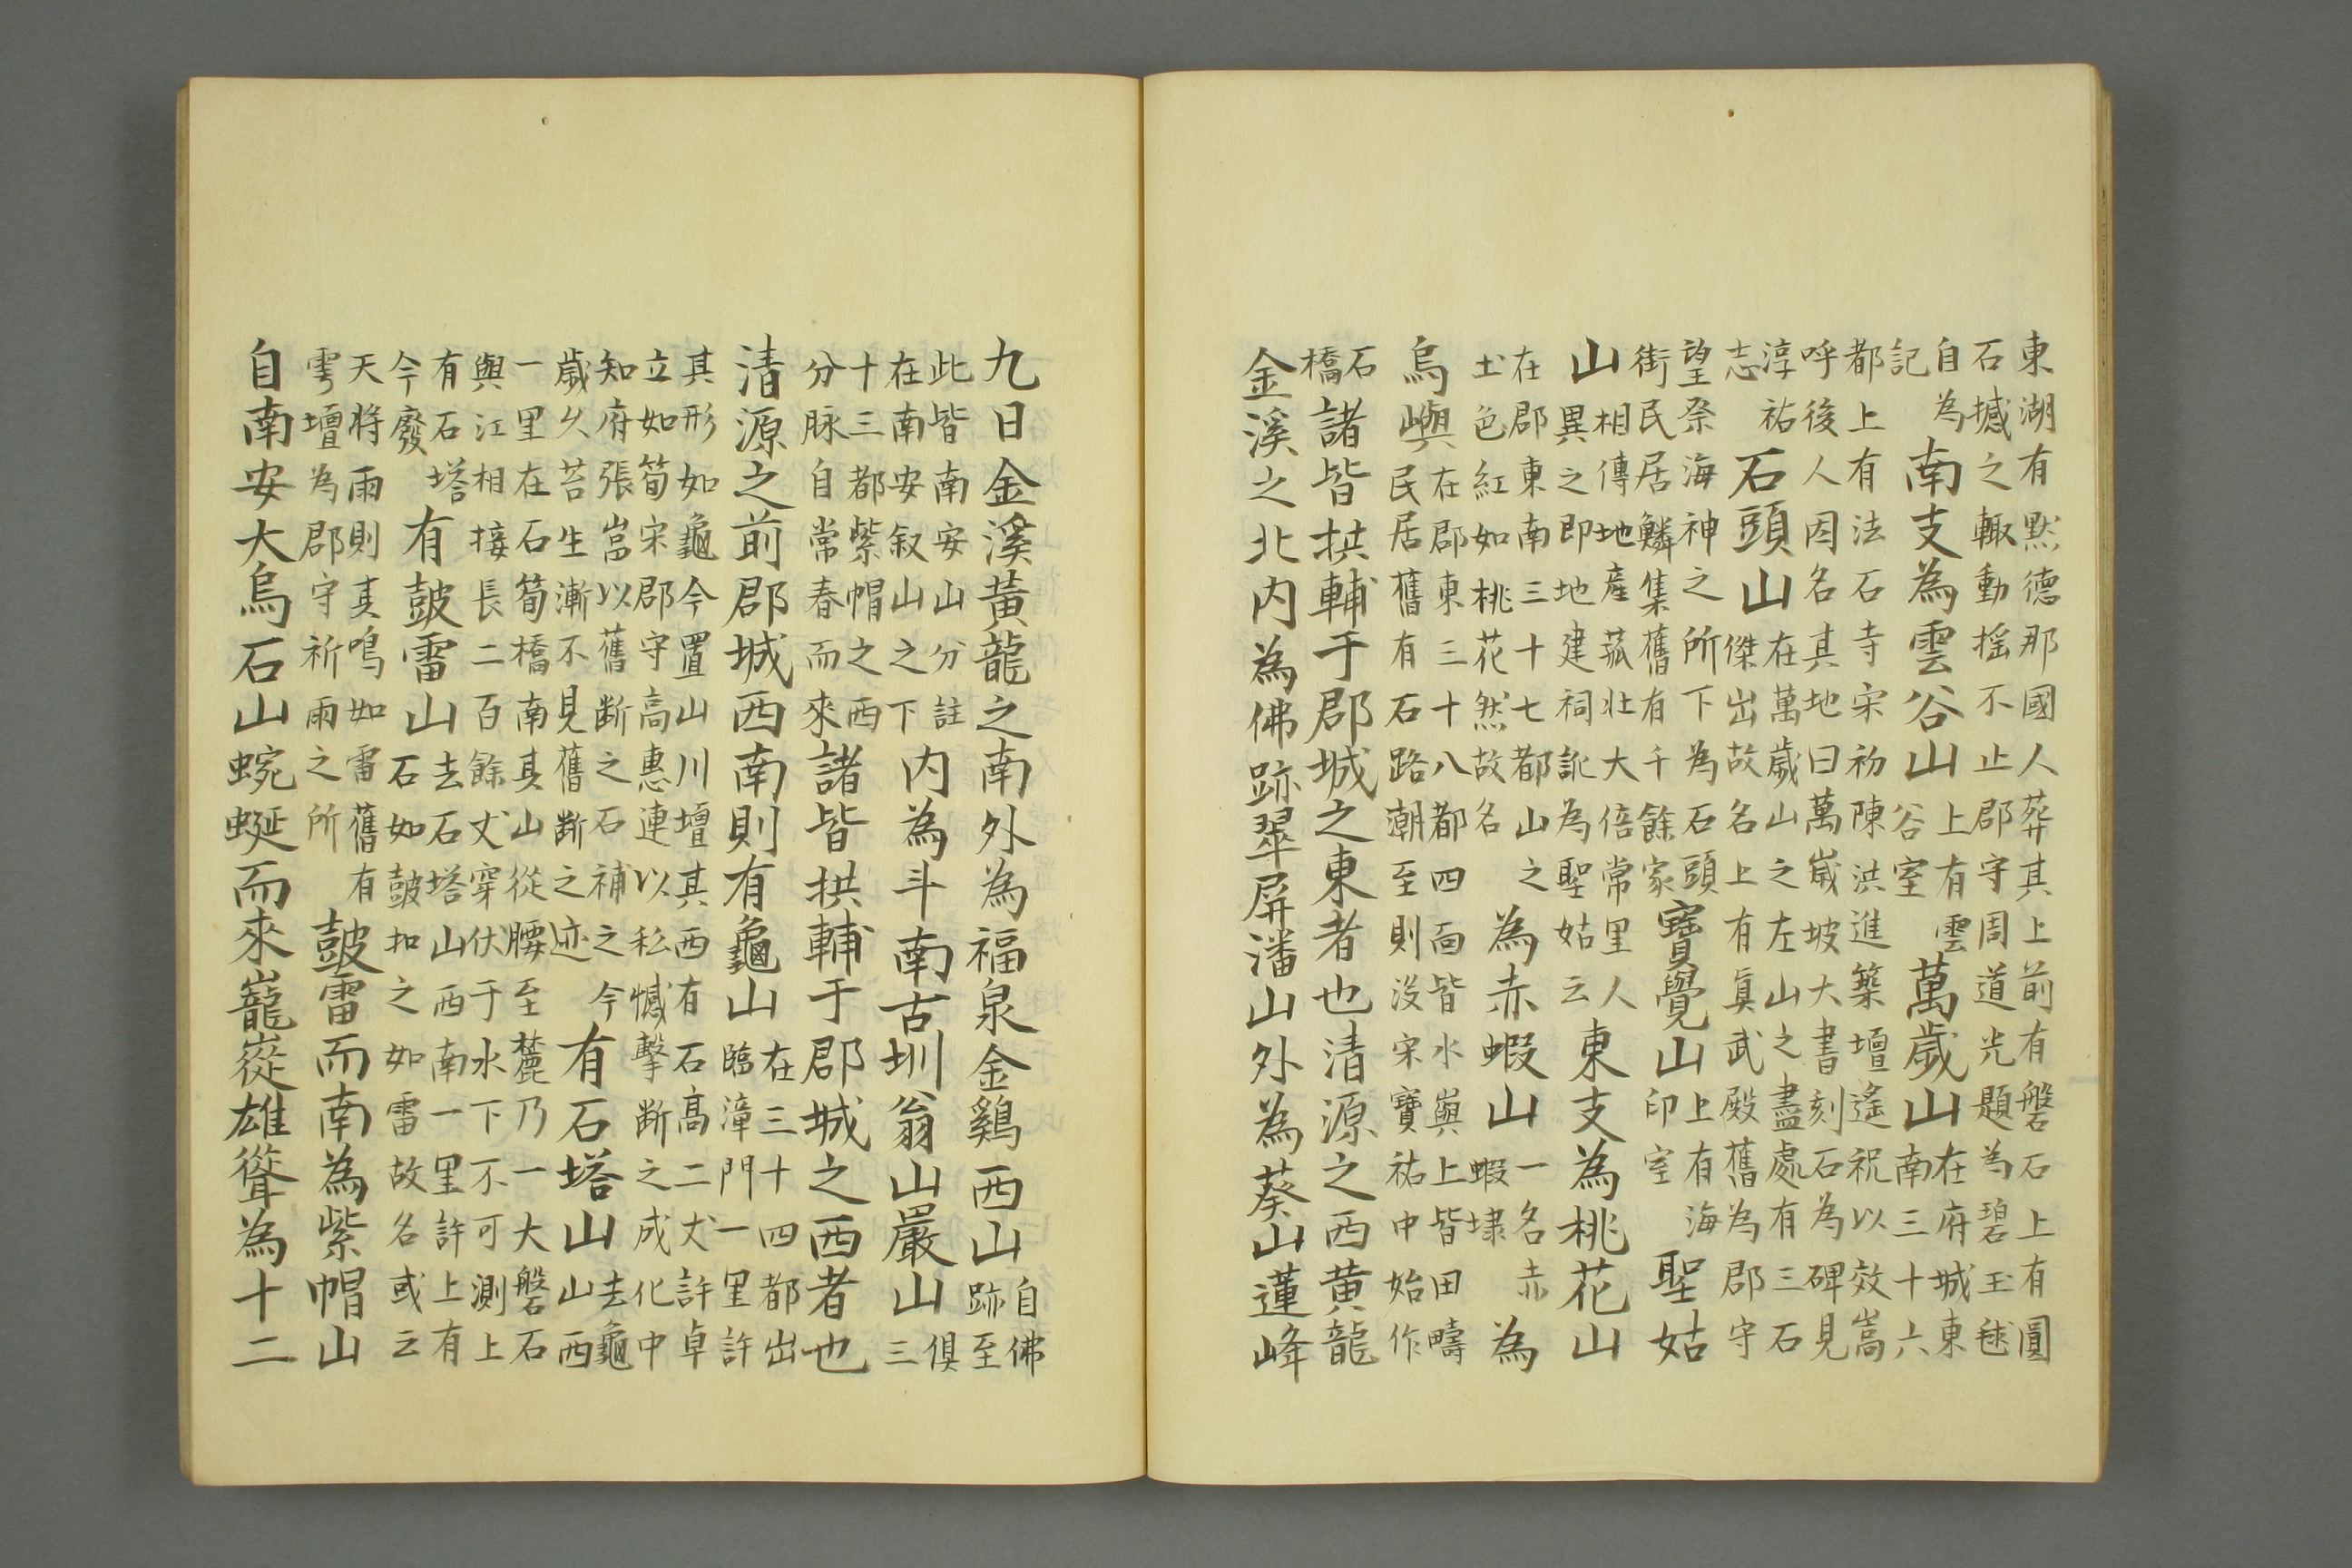 東湖有默德那國人葬其上前有磐石上有圓
石撼之輙動揺不止郡守周道光題為碧玉毬
自為記南支為雲谷山上有雲谷室萬歲山在府城東南三十六
都上有法石寺宋初陳洪進築壇遙祝以效嵩
呼後人因名其地曰萬歲坡大書刻石為碑見
淳祐志石頭山在萬歲山之左山之盡處有三石傑出故名上有真武殿舊為郡守
望祭海神之所下為石頭街民居鱗集舊有千餘家寶覺山上有海印室聖姑
山相傳地產菰壯大倍常里人異之即地建祠訛為聖姑云東支為桃花山
在郡東南三十七都山之土色紅如桃花然故名為赤蝦山一名赤蝦埭為
烏嶼在郡東三十八都四面皆水嶼上皆田疇民居舊有石路潮至則沒宋寶祐中始作
石橋諸皆拱輔于郡城之東者也清源之西黃龍
金溪之北內為佛跡翠屏潘山外為葵山蓮峰
九日金溪黃龍之南外為福泉金雞西山自佛跡至
此皆南安山分註在南安叙山之下內為斗南古圳翁山巖山俱三
十三都紫帽之西分脉自常春而來諸皆拱輔于郡城之西者也
清源之前郡城西南則有龜山在三十四都出臨漳門一里許
其形如龜今置山川壇其西有石高二丈許卓
立如筍宋郡守高惠連以私憾擊断之成化中
知府張嵓以舊断之石補之今歲久苔生漸不見舊断之迹有石塔山去龜山西
一里在石筍橋南其山從腰至麓乃一大磐石
與江相接長二百餘丈穿伏于水下不可測上
有石塔今廢有鼓雷山去石塔山西南一里許上有石如鼓扣之如雷故名或云
天將雨則其鳴如雷舊有雩壇為郡守祈雨之所鼓雷而南為紫帽山
自南安大烏石山蜿蜒而來巃嵸雄聳為十二